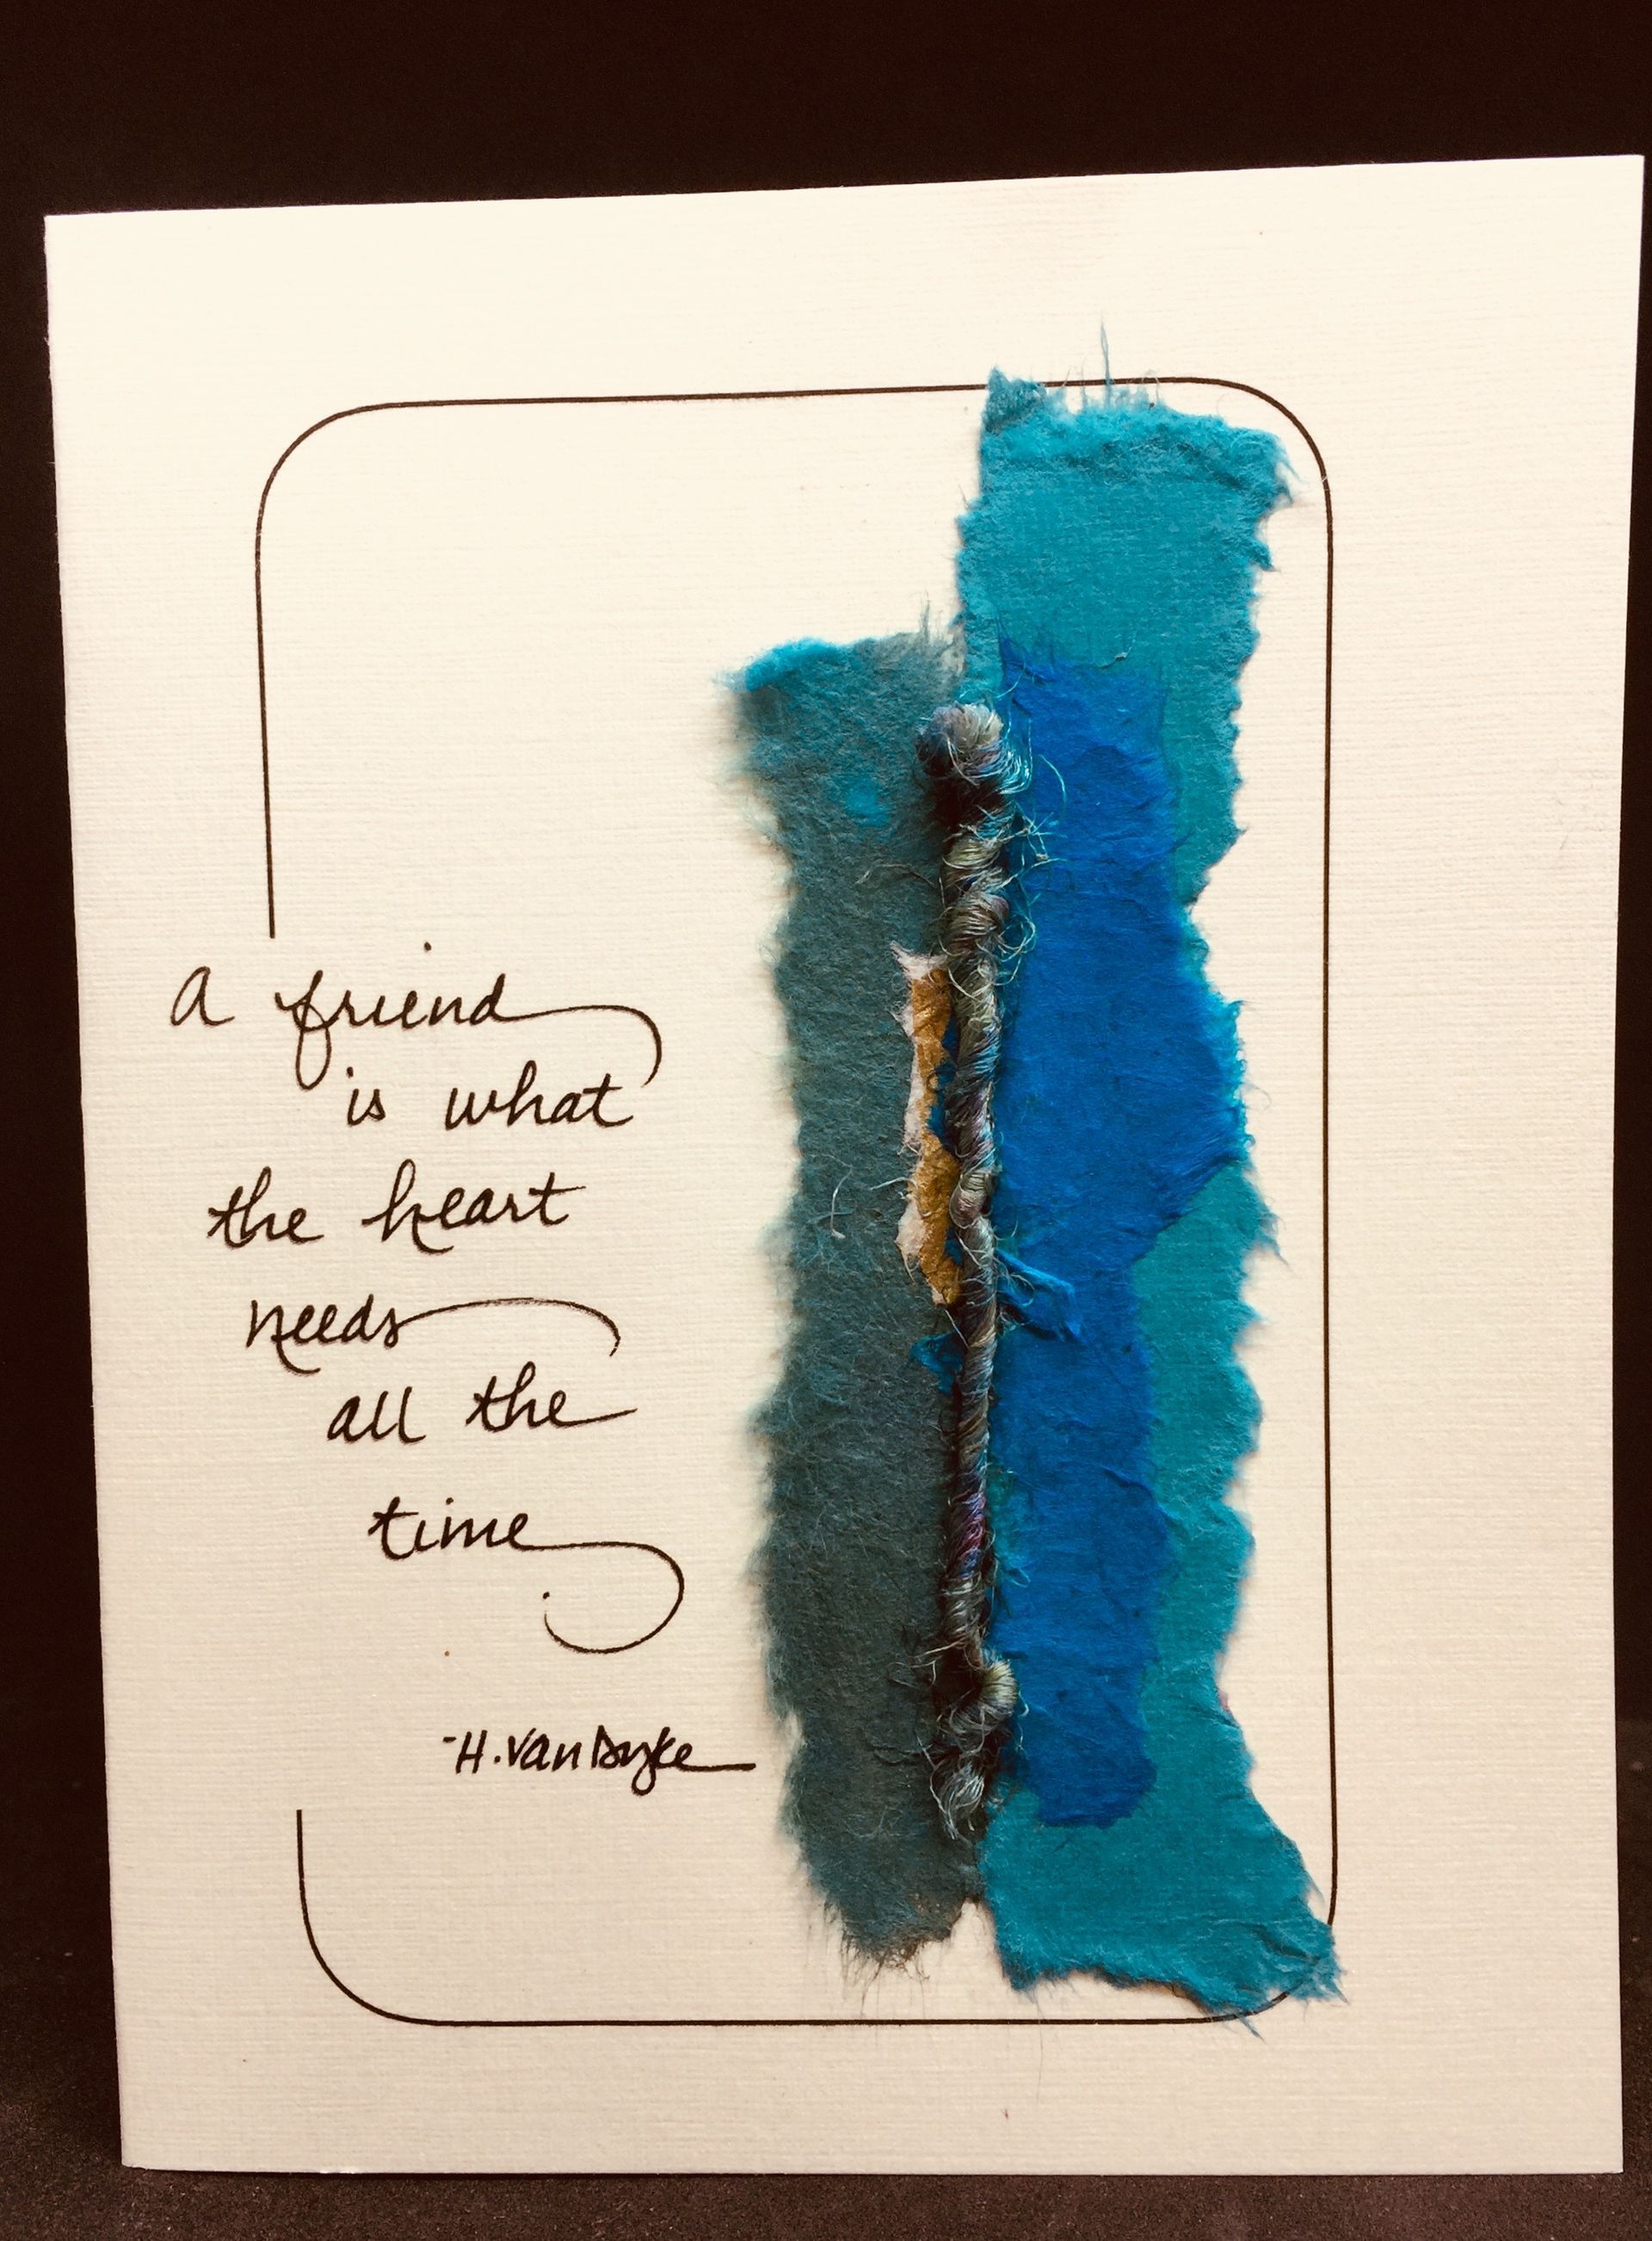 a friend
is what
the heart
needs
all the
time.
-H. Van Dyke